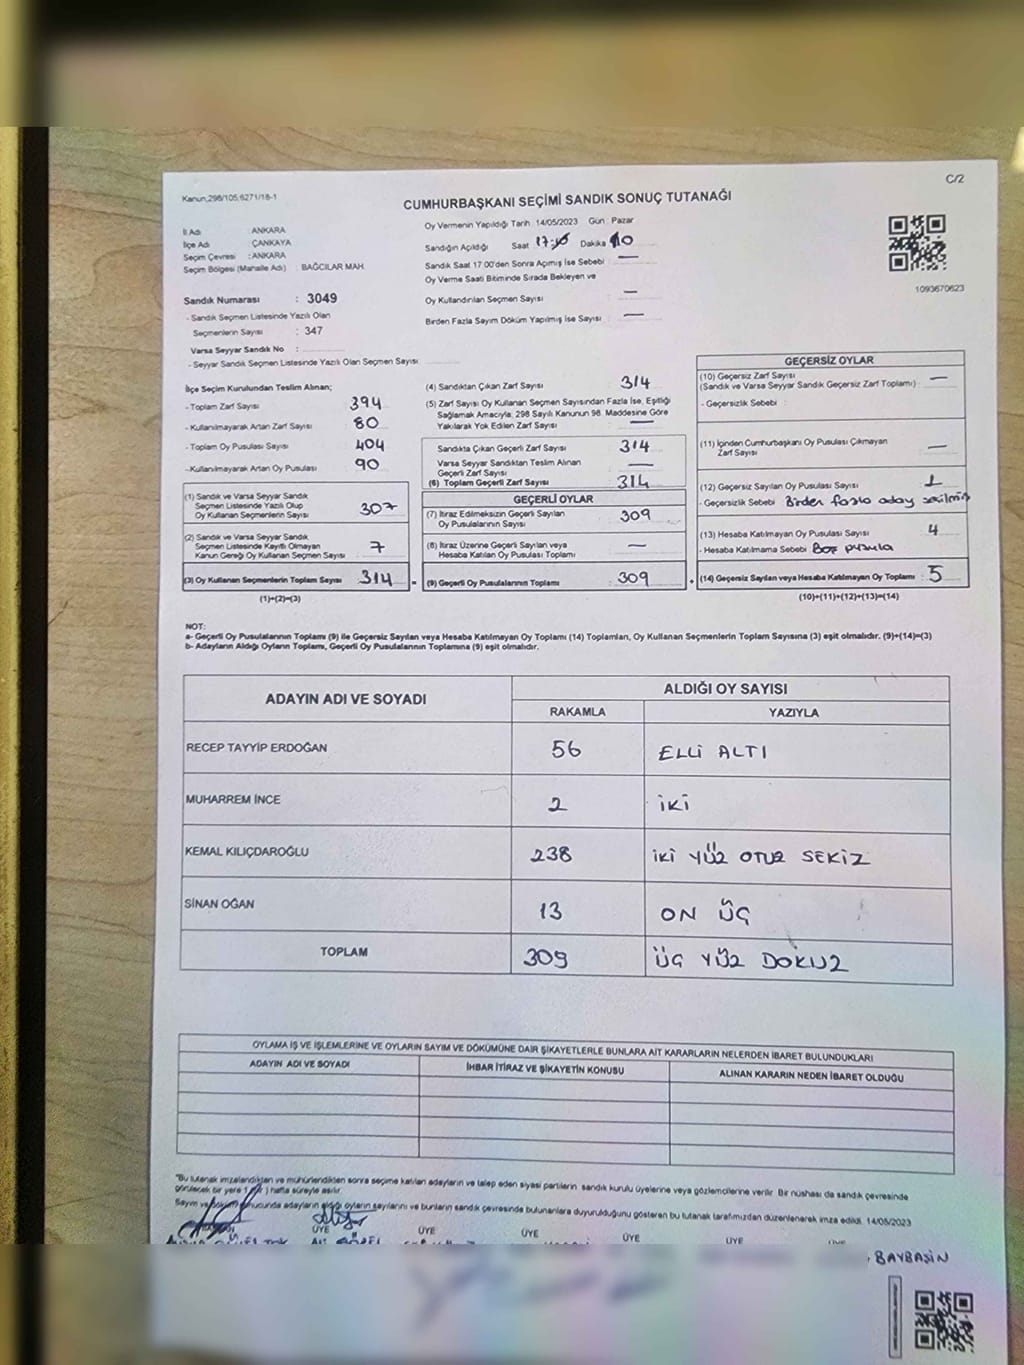 C/2
Kanun,298/105,6271/18-1
CUMHURBAŞKANI SEÇİMİ SANDIK SONUÇ TUTANAĞI
İl Adı ANKARA
İlçe Adı ÇANKAYA
Seçim Çevresi : ANKARA
Seçim Bölgesi (Mahalle Adı) : BAĞCILAR MAH.
Sandık Numarası : 3049
- Sandık Seçmen Listesinde Yazılı Olan
Seçmenlerin Sayısı : 347
Varsa Seyyar Sandık No :
- Seyyar Sandık Seçmen Listesinde Yazılı Olan Seçmen Sayısı
Oy Vermenin Yapıldığı Tarih : 14/05/2023 Gün : Pazar
Sandığın Açıldığı Saat Dakika
Sandık Saat 17:00'den Sonra Açımış İse Sebebi : —
Oy Verme Saati Bitiminde Sırada Bekleyen ve
Oy Kullandırılan Seçmen Sayısı —
Birden Fazla Sayım Döküm Yapılmış İse Sayısı : —
1093670623
İlçe Seçim Kurulundan Teslim Alınan;
- Toplam Zarf Sayısı 394
- Kullanılmayarak Artan Zarf Sayısı 80
- Toplam Oy Pusulası Sayısı 404
- Kullanılmayarak Artan Oy Pusulası 90
(1) Sandık ve Varsa Seyyar Sandık
Seçmen Listesinde Yazılı Olup
Oy Kullanan Seçmenlerin Sayısı 307
(2) Sandık ve Varsa Seyyar Sandık
Seçmen Listesinde Kayıtlı Olmayan
Kanun Gereği Oy Kullanan Seçmen Sayısı 7
(3) Oy Kullanan Seçmenlerin Toplam Sayısı 314
(1)+(2)=(3)
(4) Sandıktan Çıkan Zarf Sayısı 314
(5) Zarf Sayısı Oy Kullanan Seçmen Sayısından Fazla İse, Eşitliği
Sağlamak Amacıyla; 298 Sayılı Kanunun 98. Maddesine Göre
Yakılarak Yok Edilen Zarf Sayısı —
Sandıkta Çıkan Geçerli Zarf Sayısı 314
Varsa Seyyar Sandıktan Teslim Alınan
Geçerli Zarf Sayısı —
(6) Toplam Geçerli Zarf Sayısı 314
GEÇERLİ OYLAR
(7) İtiraz Edilmeksizin Geçerli Sayılan
Oy Pusulalarının Sayısı 309
(8) İtiraz Üzerine Geçerli Sayılan veya
Hesaba Katılan Oy Pusulası Toplamı —
= (9) Geçerli Oy Pusulalarının Toplamı 309
GEÇERSİZ OYLAR
(10) Geçersiz Zarf Sayısı
(Sandık ve Varsa Seyyar Sandık Geçersiz Zarf Toplamı) : —
- Geçersizlik Sebebi :
(11) İçinden Cumhurbaşkanı Oy Pusulası Çıkmayan
Zarf Sayısı —
(12) Geçersiz Sayılan Oy Pusulası Sayısı : 1
- Geçersizlik Sebebi Birden fazla aday seçilmiş
(13) Hesaba Katılmayan Oy Pusulası Sayısı : 4
- Hesaba Katılmama Sebebi Boş pusula
+ (14) Geçersiz Sayılan veya Hesaba Katılmayan Oy Toplamı : 5
(10)+(11)+(12)+(13)=(14)
NOT:
a- Geçerli Oy Pusulalarının Toplamı (9) ile Geçersiz Sayılan veya Hesaba Katılmayan Oy Toplamı (14) Toplamları, Oy Kullanan Seçmenlerin Toplam Sayısına (3) eşit olmalıdır. (9)+(14)=(3)
b- Adayların Aldığı Oyların Toplamı, Geçerli Oy Pusulalarının Toplamına (9) eşit olmalıdır.
ADAYIN ADI VE SOYADI ALDIĞI OY SAYISI
RAKAMLA YAZIYLA
RECEP TAYYİP ERDOĞAN 56 ELLİ ALTI
MUHARREM İNCE 2 İKİ
KEMAL KILIÇDAROĞLU 238 İKİ YÜZ OTUZ SEKİZ
SİNAN OĞAN 13 ON ÜÇ
TOPLAM 309 ÜÇ YÜZ DOKUZ
OYLAMA İŞ VE İŞLEMLERİNE VE OYLARIN SAYIM VE DÖKÜMÜNE DAİR ŞİKAYETLERLE BUNLARA AİT KARARLARIN NELERDEN İBARET BULUNDUKLARI
ADAYIN ADI VE SOYADI İHBAR İTİRAZ VE ŞİKAYETİN KONUSU ALINAN KARARIN NEDEN İBARET OLDUĞU
"Bu tutanak imzalandıktan ve mühürlendikten sonra seçime katılan adayların ve talep eden siyasi partilerin sandık kurulu üyelerine veya gözlemcilerine verilir. Bir nüshası da sandık çevresinde
görülecek bir yere 1 hafta süreyle asılır.
Sayım ve döküm sonucunda adayların aldığı oyların sayılarını ve bunların sandık çevresinde bulunanlara duyurulduğunu gösteren bu tutanak tarafımızdan düzenlenerek imza edildi. 14/05/2023
ÜYE ÜYE ÜYE ÜYE ÜYE
BAYBAŞİN